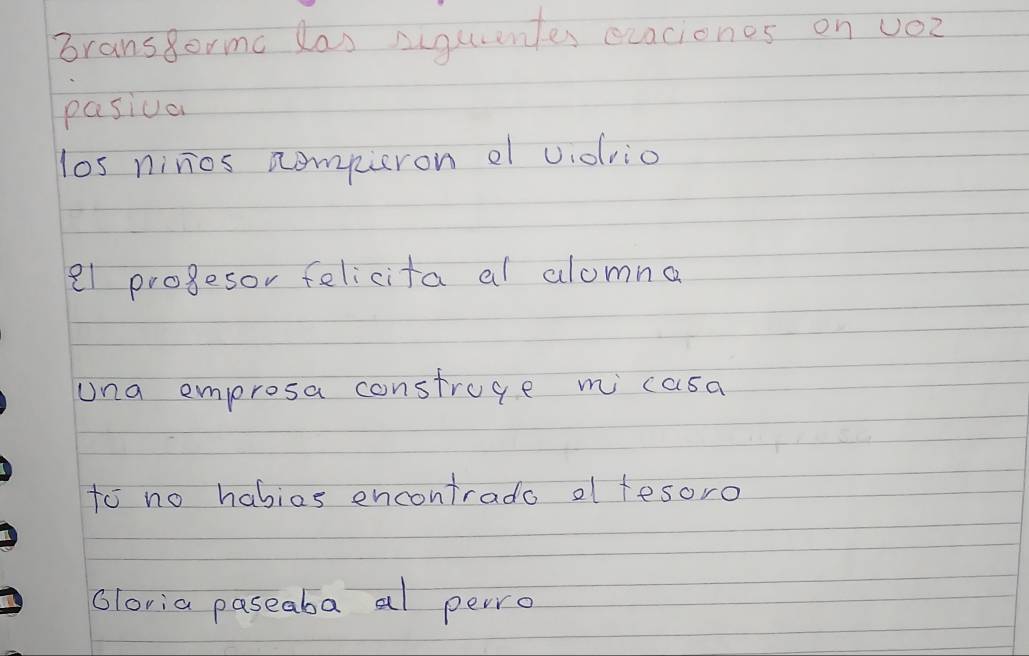 Transforma las siguientes oraciones en voz
pasiva
los niños rompieron el vidrio
El profesor felicita al alumna
Una empresa construye mi casa
tú no habias encontrado el tesoro
Gloria paseaba al perro